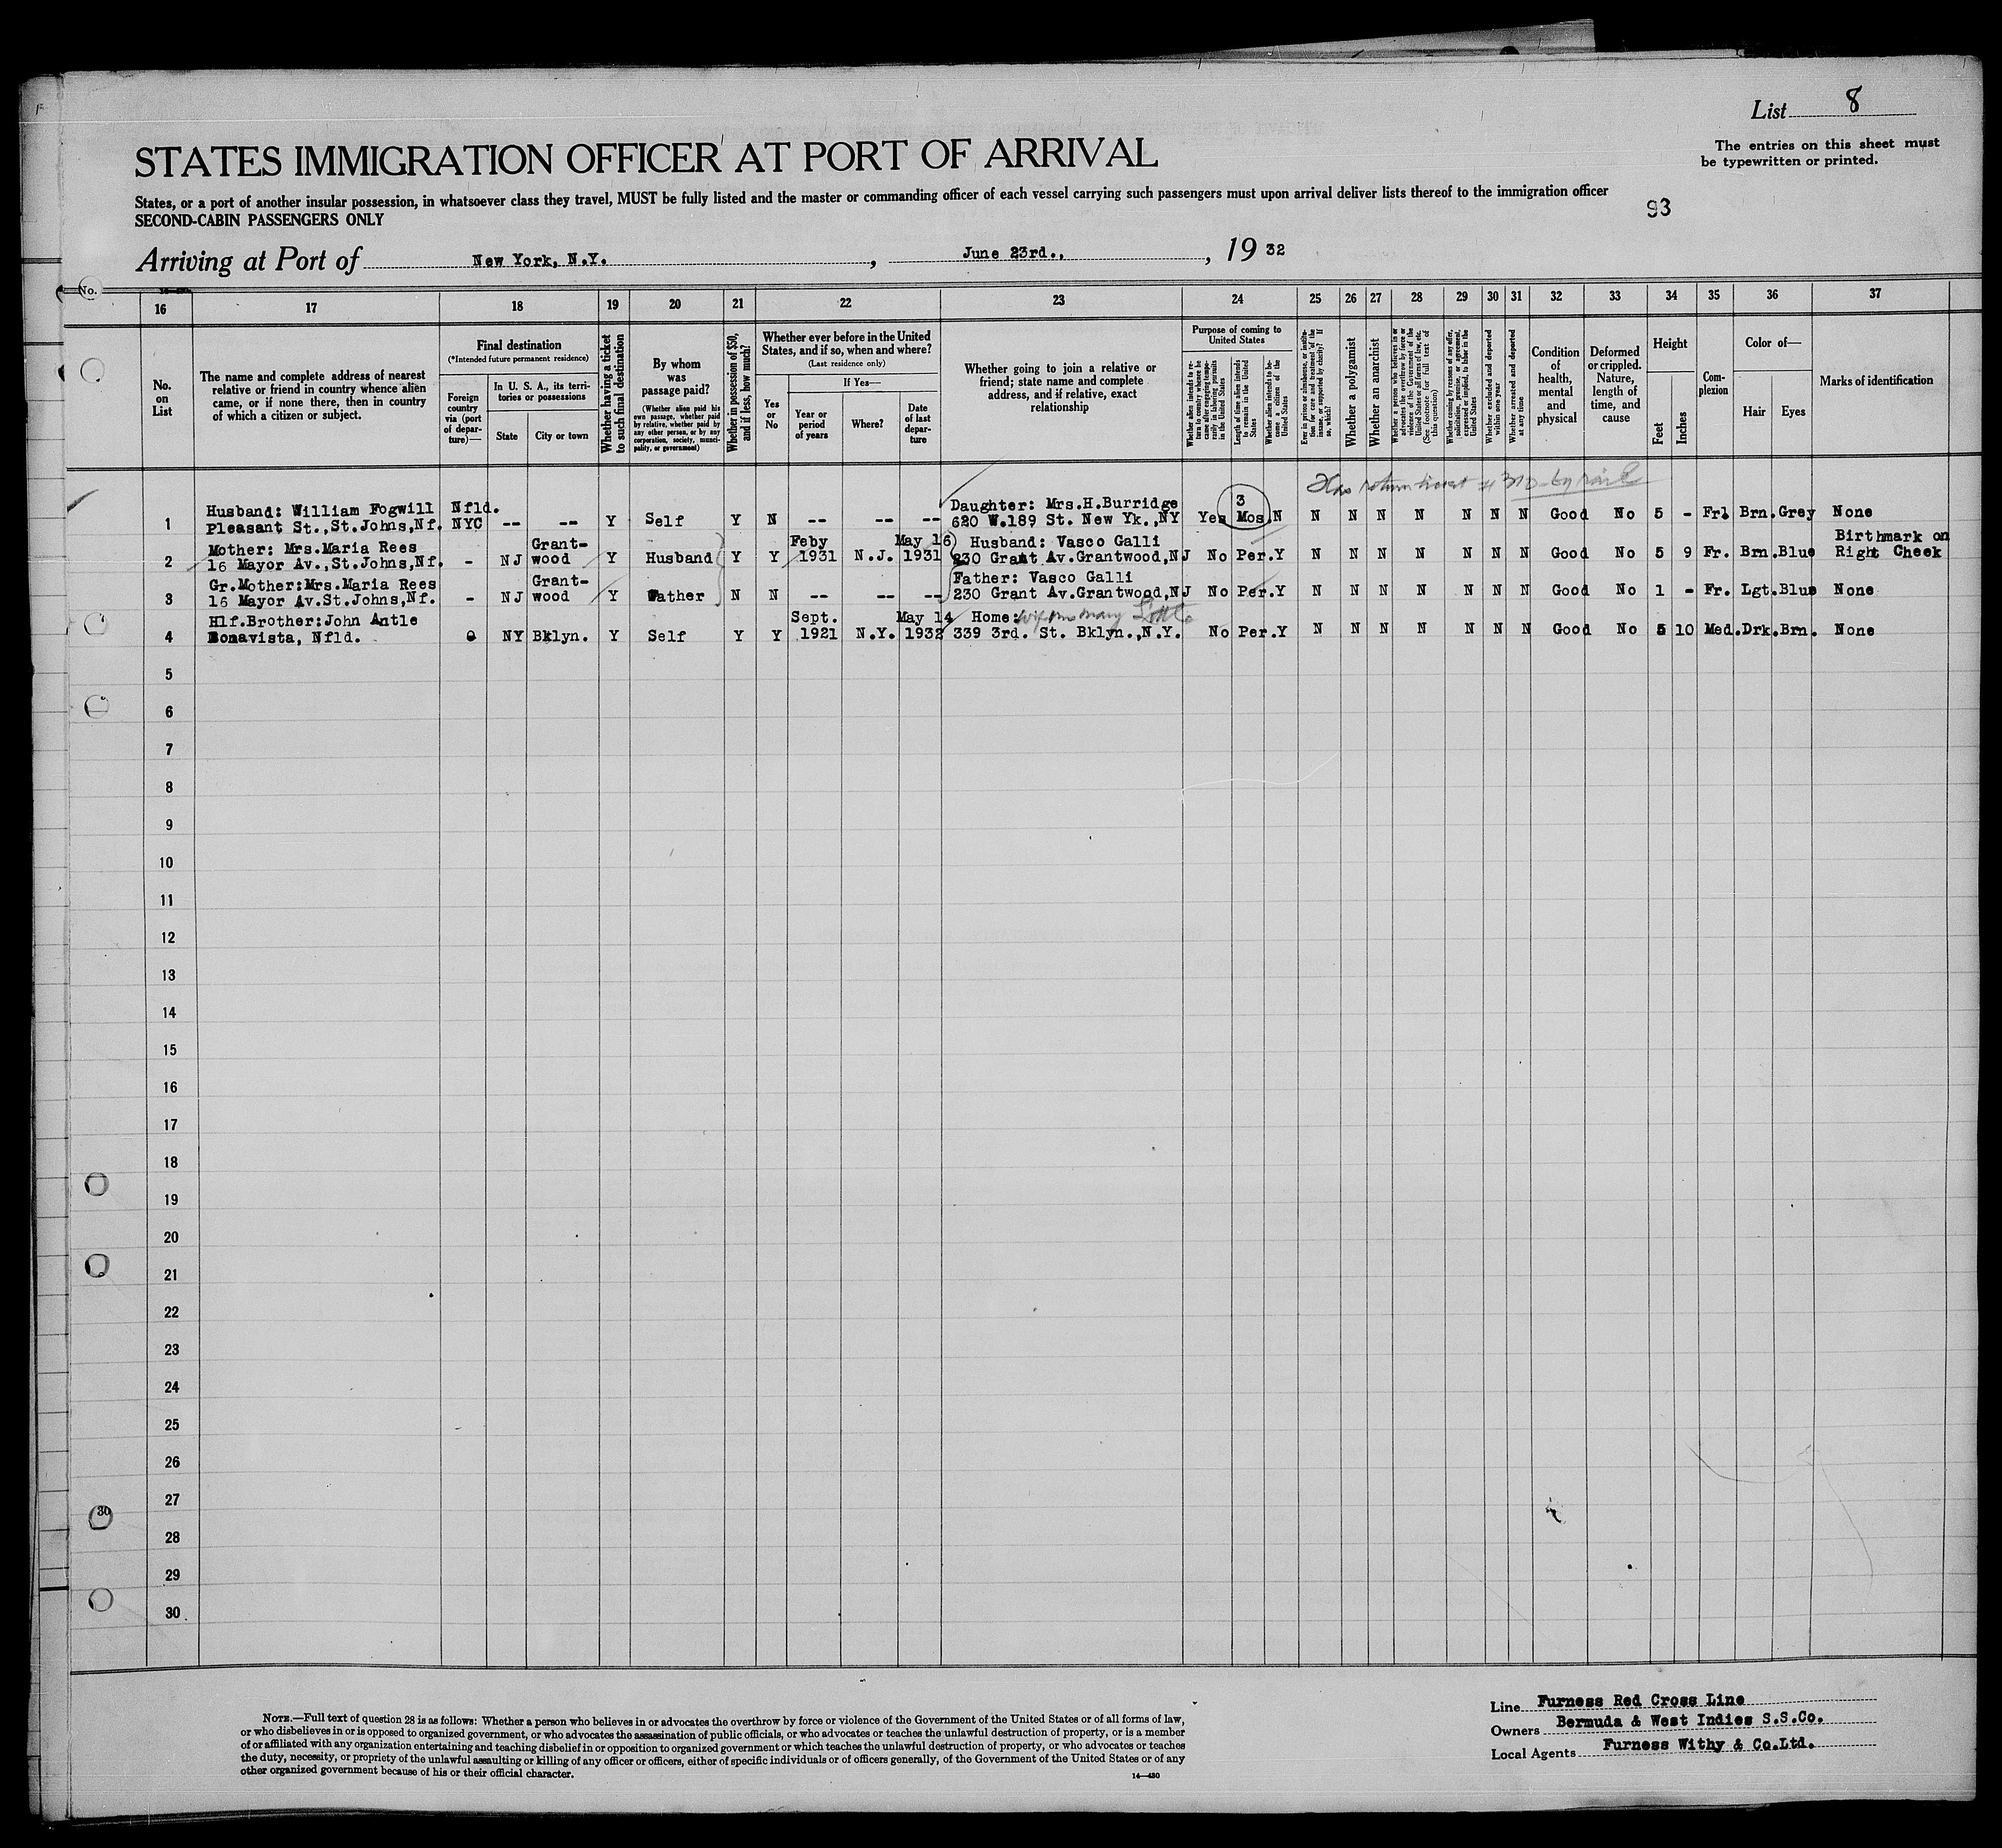 List 8
The entries on this sheet must
be typewritten or printed.
STATES IMMIGRATION OFFICER AT PORT OF ARRIVAL
States, or a port of another insular possession, in whatsoever class they travel, MUST be fully listed and the master or commanding officer of each vessel carrying such passengers must upon arrival deliver lists thereof to the immigration officer
SECOND-CABIN PASSENGERS ONLY
93
Arriving at Port of New York, N.Y. , June 23rd., , 19 32
No.
16 17 18 19 20 21 22 23 24 25 26 27 28 29 30 31 32 33 34 35 36 37
No. on List
The name and complete address of nearest
relative or friend in country whence alien
came, or if none there, then in country
of which a citizen or subject.
Final destination
(*Intended future permanent residence)
Foreign
country
via (port
of depar-
ture)—
In U. S. A., its terri-
tories or possessions
State
City or town
Whether having a ticket
to such final destination
By whom
was
passage paid?
(Whether alien paid his
own passage, whether paid
by relative, whether paid by
any other person, or by any
corporation, society, munici-
pality, or government)
Whether in possession of $50,
and if less, how much?
Whether ever before in the United
States, and if so, when and where?
(Last residence only)
Yes
or
No
If Yes—
Year or
period
of years
Where?
Date
of last
depar-
ture
Whether going to join a relative or
friend; state name and complete
address, and if relative, exact
relationship
Purpose of coming to
United States
Whether alien intends to re-
turn to country whence he
came after engaging tempo-
rarily in laboring pursuits
in the United States
Length of time alien intends
to remain in the United
States
Whether alien intends to be-
come a citizen of the
United States
Ever in prison or almshouse, or institu-
tion for care and treatment of the
insane, or supported by charity? If
so, which?
Whether a polygamist
Whether an anarchist
Whether a person who believes in or
advocates the overthrow by force or
violence of the Government of the
United States or all forms of law, etc.
(See footnote for full text of
this question)
Whether coming by reasons of any offer,
solicitation, promise, or agreement,
expressed or implied, to labor in the
United States
Whether excluded and deported
within one year
Whether arrested and deported
at any time
Condition
of
health,
mental
and
physical
Deformed
or crippled.
Nature,
length of
time, and
cause
Height
Feet
Inches
Com-
plexion
Color of—
Hair
Eyes
Marks of identification
Has return ticket # 310 by rail
Husband: William Fogwill Nfld. Daughter: Mrs.H.Burridge 3
1 Pleasant St.,St.Johns,Nf. NYC -- -- Y Self Y N -- -- -- 620 W.189 St. New Yk.,NY Yes Mos. N N N N N N N N Good No 5 - Frl Brn. Grey None
Mother: Mrs.Maria Rees Grant- Feby May 16 Husband: Vasco Galli Birthmark on
2 16 Mayor Av.,St.Johns,Nf. - NJ wood Y Husband Y Y 1931 N.J. 1931 230 Grant Av.Grantwood,NJ No Per. Y N N N N N N N Good No 5 9 Fr. Brn. Blue Right Cheek
Gr.Mother:Mrs.Maria Rees Grant- Father: Vasco Galli
3 16 Mayor Av.St.Johns,Nf. - NJ wood Y Father N N -- -- -- 230 Grant Av.Grantwood,NJ No Per. Y N N N N N N N Good No 1 - Fr. Lgt. Blue None
Hlf.Brother:John Antle Sept. May 14 Home: wife Mrs Mary
4 Bonavista, Nfld. NY Bklyn. Y Self Y Y 1921 N.Y. 1932 339 3rd. St. Bklyn.,N.Y. No Per. Y N N N N N N N Good No 5 10 Med. Drk. Brn. None
5
6
7
8
9
10
11
12
13
14
15
16
17
18
19
20
21
22
23
24
25
26
27
30
28
29
30
NOTE.—Full text of question 28 is as follows: Whether a person who believes in or advocates the overthrow by force or violence of the Government of the United States or of all forms of law,
or who disbelieves in or is opposed to organized government, or who advocates the assassination of public officials, or who advocates or teaches the unlawful destruction of property, or is a member
of or affiliated with any organization entertaining and teaching disbelief in or opposition to organized government or which teaches the unlawful destruction of property, or who advocates or teaches
the duty, necessity, or propriety of the unlawful assaulting or killing of any officer or officers, either of specific individuals or of officers generally, of the Government of the United States or of any
other organized government because of his or their official character.
14—430
Line Furness Red Cross Line
Owners Bermuda & West Indies S.S.Co.
Local Agents Furness Withy & Co.Ltd.